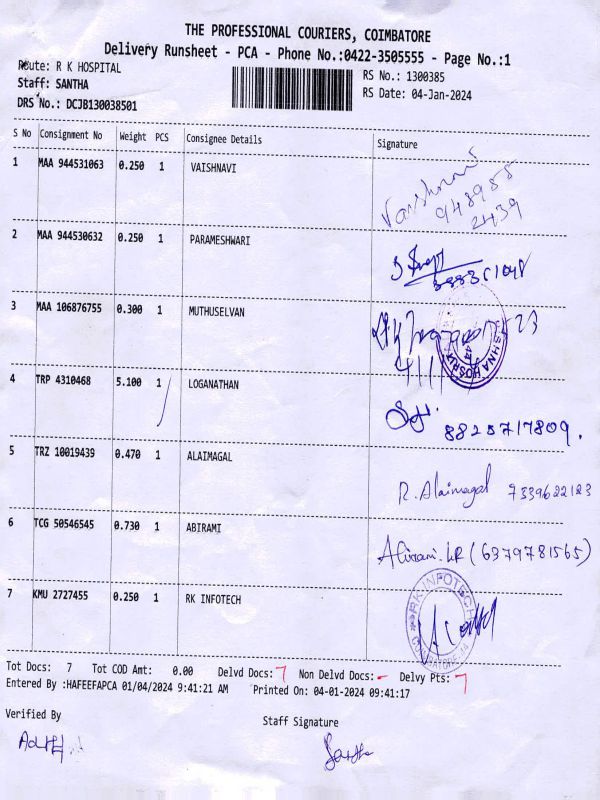 THE PROFESSIONAL COURIERS, COIMBATORE
Delivery Runsheet - PCA - Phone No.:0422-3505555 - Page No.:1
Route: R K HOSPITAL
Staff: SANTHA
DRS No.: DCJB130038501
RS No.: 1300385
RS Date: 04-Jan-2024
S No Consignment No Weight PCS Consignee Details Signature
1 MAA 944531063 0.250 1 VAISHNAVI Vaishnavi
948955
2439
2 MAA 944530632 0.250 1 PARAMESHWARI
3 MAA 106876755 0.300 1 MUTHUSELVAN
4 TRP 4310468 5.100 1 LOGANATHAN
8825717809.
5 TRZ 10019439 0.470 1 ALAIMAGAL R. Alaimagal 7339622123
6 TCG 50546545 0.730 1 ABIRAMI Abirami. (6379781565)
7 KMU 2727455 0.250 1 RK INFOTECH
RK INFOTECH
Tot Docs: 7 Tot COD Amt: 0.00 Delvd Docs: 7 Non Delvd Docs: - Delvy Pts: 7
Entered By :HAFEEFAPCA 01/04/2024 9:41:21 AM Printed On: 04-01-2024 09:41:17
Verified By
Staff Signature